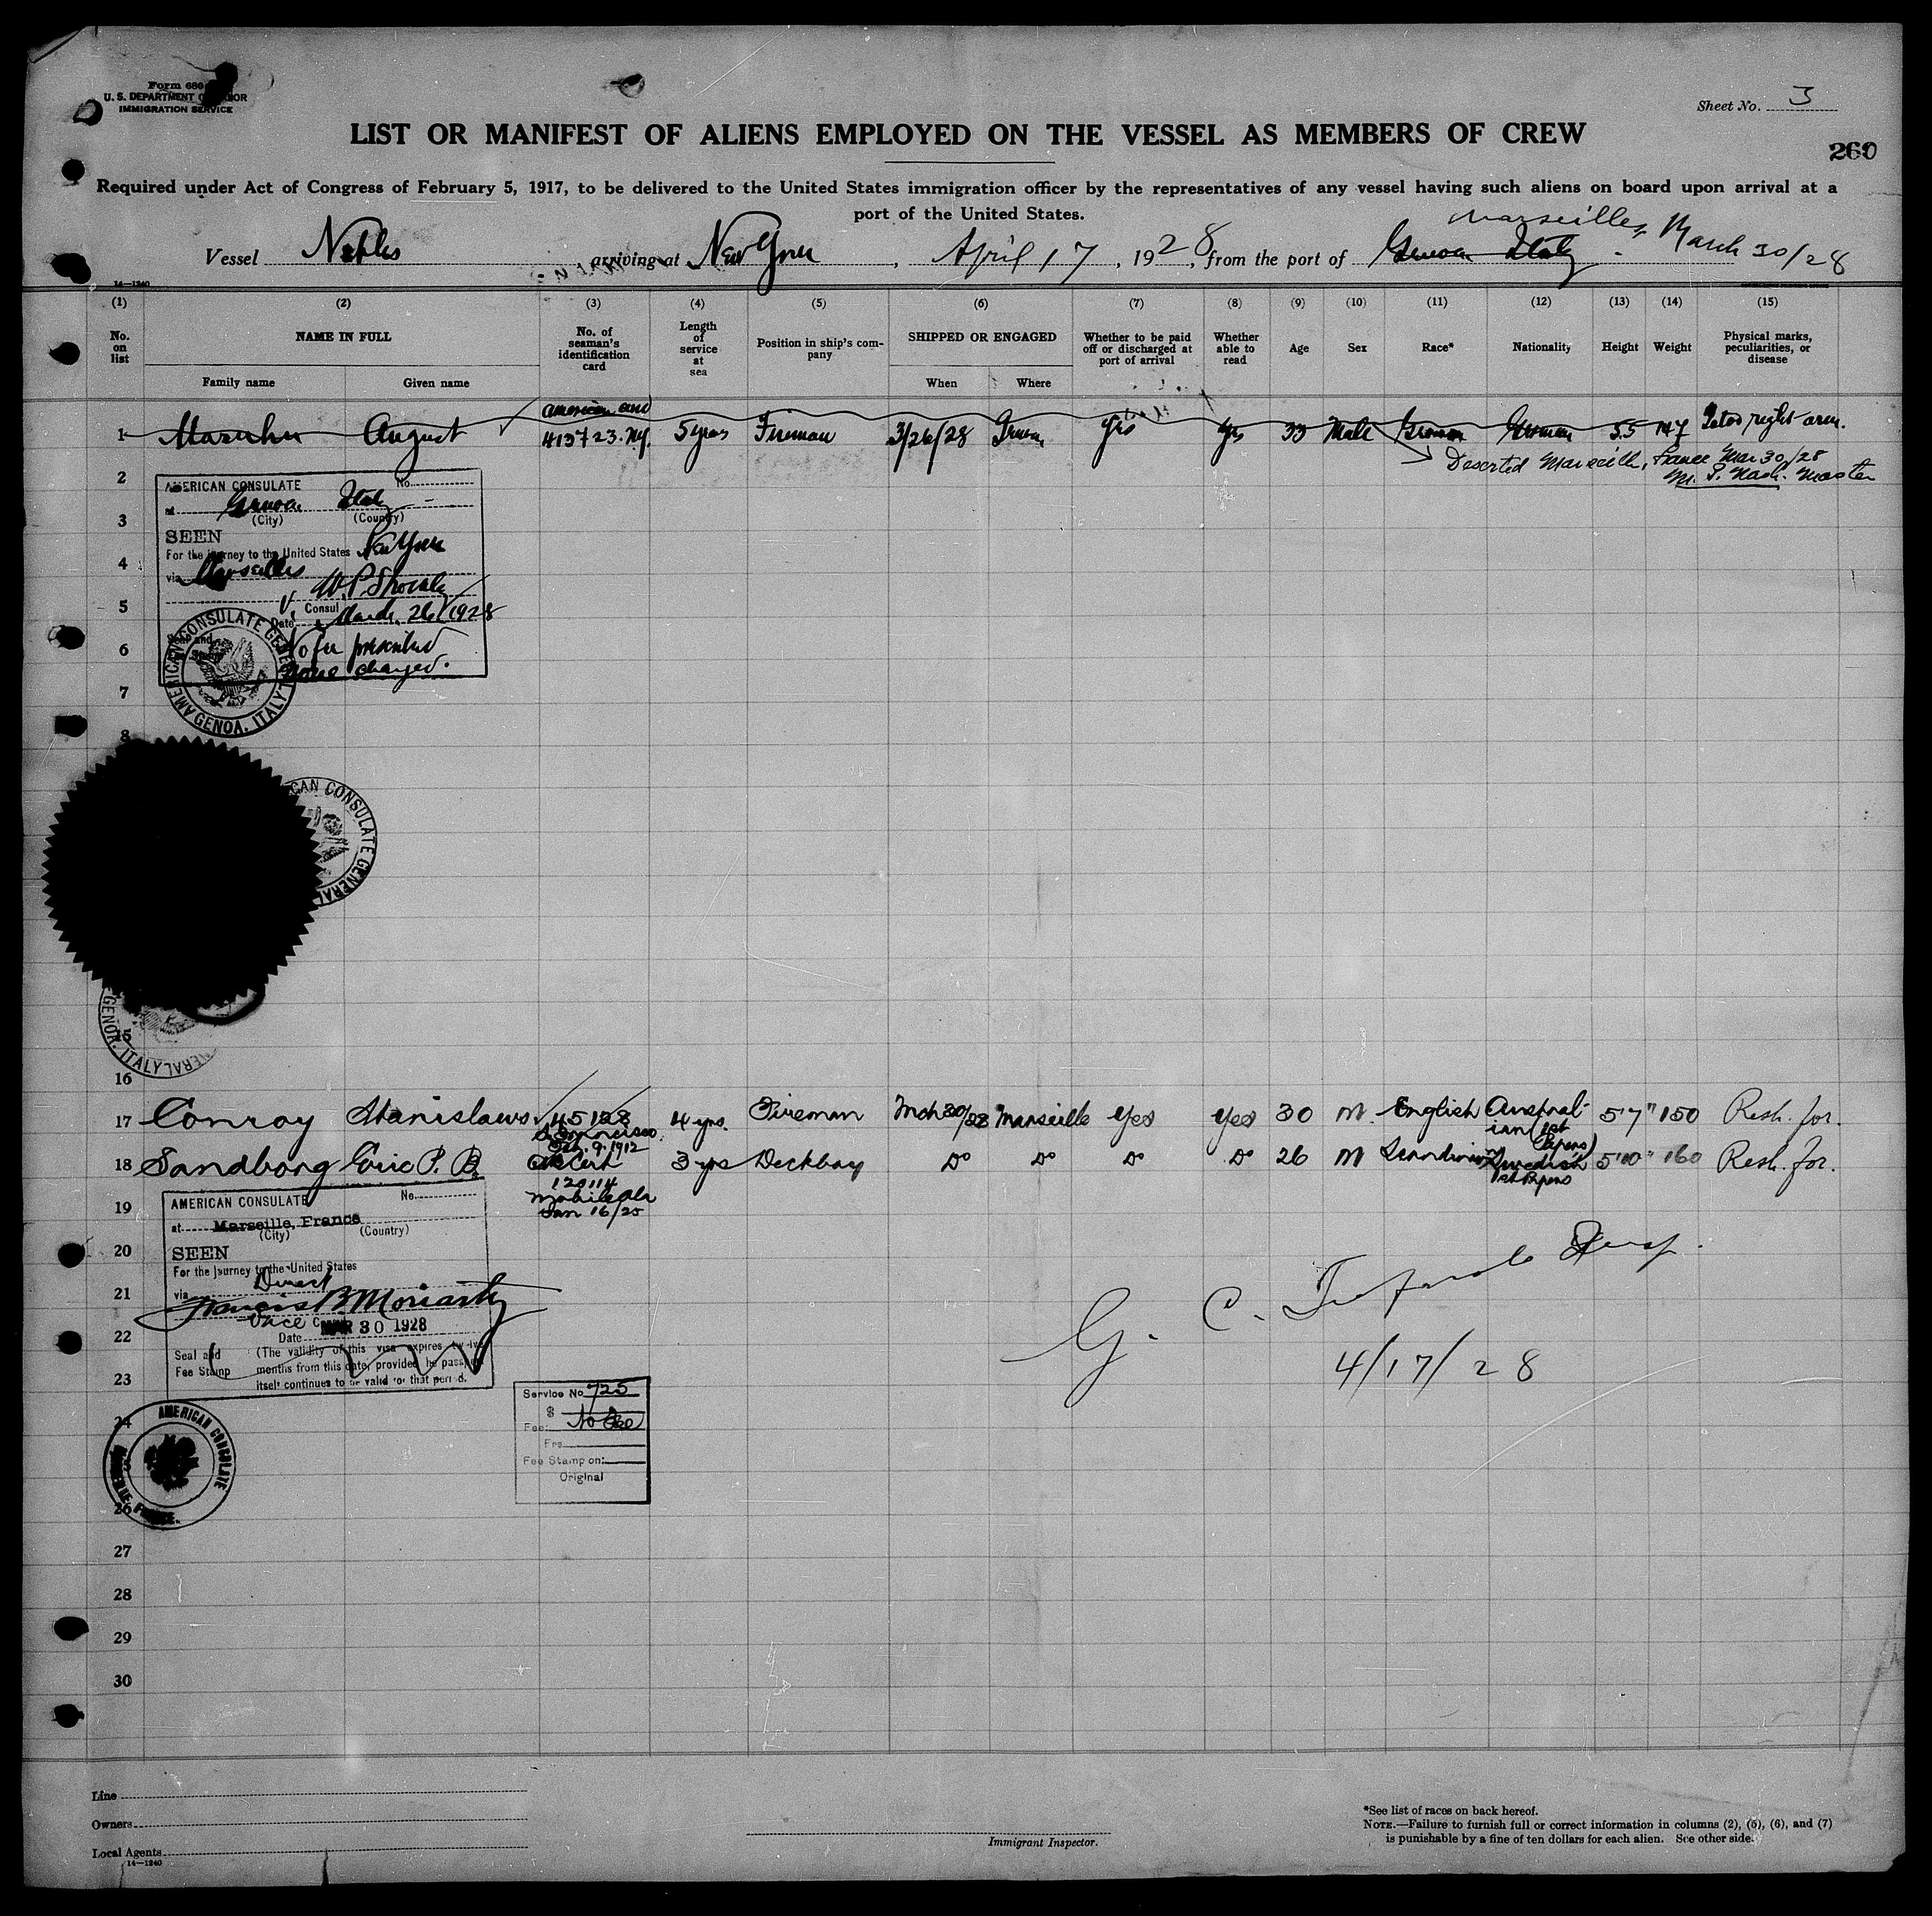 Form 680
U. S. DEPARTMENT OF LABOR
IMMIGRATION SERVICE
Sheet No. 3
LIST OR MANIFEST OF ALIENS EMPLOYED ON THE VESSEL AS MEMBERS OF CREW
260
Required under Act of Congress of February 5, 1917, to be delivered to the United States immigration officer by the representatives of any vessel having such aliens on board upon arrival at a
port of the United States.
Marseilles, March 30/28
Vessel Naples arriving at New York, April 17, 1928, from the port of Genoa Italy
14—1240
(1) (2) (3) (4) (5) (6) (7) (8) (9) (10) (11) (12) (13) (14) (15)
No. on list
NAME IN FULL
Family name
Given name
No. of seaman's identification card
Length of service at sea
Position in ship's company
SHIPPED OR ENGAGED
When
Where
Whether to be paid off or discharged at port of arrival
Whether able to read
Age
Sex
Race*
Nationality
Height
Weight
Physical marks, peculiarities, or disease
American and
1 August 413723 NY. 5 years Fireman 3/26/28 Genoa Yes Yes 33 Male German German 5.5 147 Tatoo right arm.
Deserted Marseille, France Mar 30/28
M. S. Nash. Master
2
AMERICAN CONSULATE No.
at Genoa Italy
(City) (Country)
3
SEEN
For the journey to the United States New York
4
via Marseilles
W. P. Shockley
5
V. Consul
Date March 26/1928
6
No fee prescribed
none charged.
7
AMERICAN CONSULATE GENERAL GENOA, ITALY
8
15
16
17 Conroy Stanislaws 45128 4 yrs. Fireman Mch 30/28 Marseille Yes Yes 30 M. English Australian (1st Papers) 5'7" 150 Resh. for.
S. Francisco
9. 1912
18 Sandborg Eric P. B. Cert 3 yrs Deckboy Do Do Do Do 26 M Scandinavian Swedish 5'10" 160 Resh. for.
1st Papers
120114
Mobile Ala
Jan 16/25
19
AMERICAN CONSULATE No.
at Marseille, France
(City) (Country)
20
SEEN
For the journey to the United States
21
via Direct
Francis B. Moriarty
Vice Consul
22
Date MAR 30 1928
Seal and Fee Stamp
(The validity of this visa expires twelve
months from this date, provided the passport
itself continues to be valid for that period.
23
G. C. Insp.
4/17/28
Service No 725
$
Fee: No Fee
Frs.
Fee Stamp on:
Original
24
AMERICAN CONSULATE MARSEILLE, FRANCE.
26
27
28
29
30
Line
Owners
Local Agents
14—1240
Immigrant Inspector.
*See list of races on back hereof.
NOTE.—Failure to furnish full or correct information in columns (2), (5), (6), and (7)
is punishable by a fine of ten dollars for each alien. See other side.